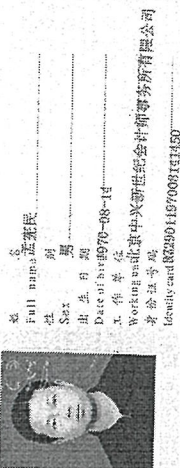 姓 名
Full name 孟宪民
性 别
Sex 男
出 生 日 期
Date of birth 1970-08-14
工 作 单 位
Working unit 北京中兴新世纪会计师事务所有限公司
身 份 证 号 码
Identity card